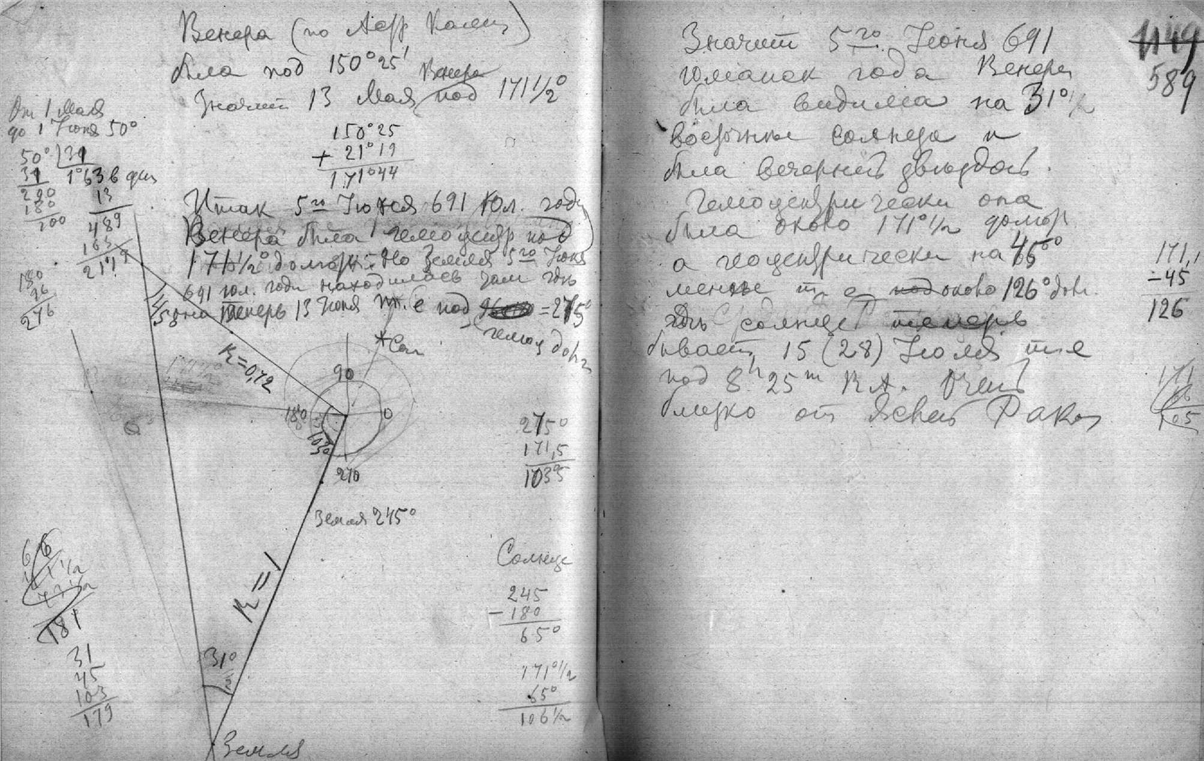 Венера (по
была под 150°25'
Значит 13 Мая Венера под 171 1/2°
150°25
+ 21°19
171°44
От 1 Мая
до 1 Июня 50°
50° 31
31 1°636
190
180
100
13
489
163
Итак 5го Июня 691 Юл. года
Венера была гелиоцентр под
171 1/2° долготы. Но Земля 5го Июня
691 юл. года находилась там где
она теперь 13 Июня т.е под =245°
180
96
276
45
R=0,72
90
180
0
103°
270
Земля 245°
R=1
31°
Земля
275°
171,5
1035
Солнце
245
-180
65°
171° 1/2
65°
106 1/2
181
31
45
103
179
Значит 5го Июня 691
юлианск года Венера
была видима на 31° 1/2
восточнее солнца и
была вечерней звездой.
Гелиоцентрически она
была около 171° 1/2 долгот
а геоцентрически на 45°
менее т е под около 126° долг.
где солнце теперь
бывает 15 (28) Июля т.е
под 8h 25m R.A. Очень
близко от Яслей Рака
1149
589
171,
-45
126
171
66
105